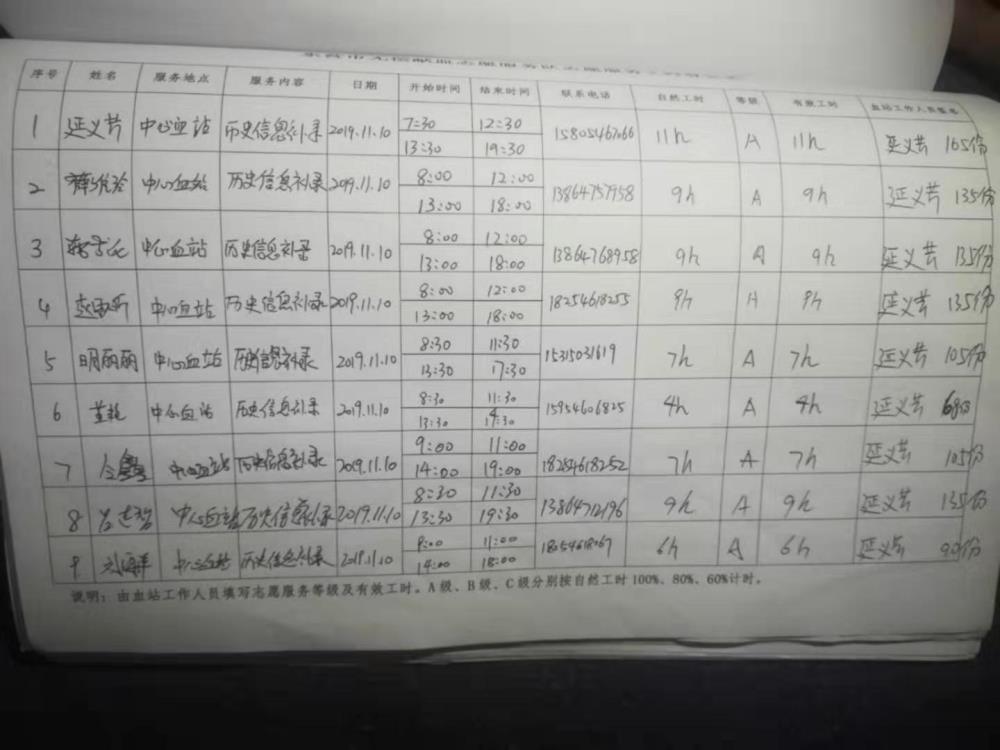 序号 姓名 服务地点 服务内容 日期 开始时间 结束时间 联系电话 自然工时 等级 有效工时 血站工作人员签名
1 延义芳 中心血站 历史信息补录 2019.11.10 7:30 12:30 15805467066 11h A 11h 延义芳 165份
13:30 19:30
2 中心血站 历史信息补录 2019.11.10 8:00 12:00 13864757958 9h A 9h 延义芳 135份
13:00 18:00
3 中心血站 历史信息补录 2019.11.10 8:00 12:00 13864768958 9h A 9h 延义芳 135份
13:00 18:00
4 中心血站 历史信息补录 2019.11.10 8:00 12:00 18254618255 9h A 9h 延义芳 135份
13:00 18:00
5 明丽丽 中心血站 历史信息补录 2019.11.10 8:30 11:30 15315031619 7h A 7h 延义芳 105份
13:30 17:30
6 中心血站 历史信息补录 2019.11.10 8:30 11:30 15954606825 4h A 4h 延义芳
13:30
7 中心血站 历史信息补录 2019.11.10 9:00 11:00 18254618252 7h A 7h 延义芳 105份
14:00 19:00
8 中心血站 历史信息补录 2019.11.10 8:30 11:30 13864712196 9h A 9h 延义芳 135份
13:30 19:30
9 刘海洋 中心血站 历史信息补录 9:00 11:00 6h A 6h 延义芳 90份
14:00 18:00
说明：由血站工作人员填写志愿服务等级及有效工时。A级、B级、C级分别按自然工时100%、80%、60%计时。